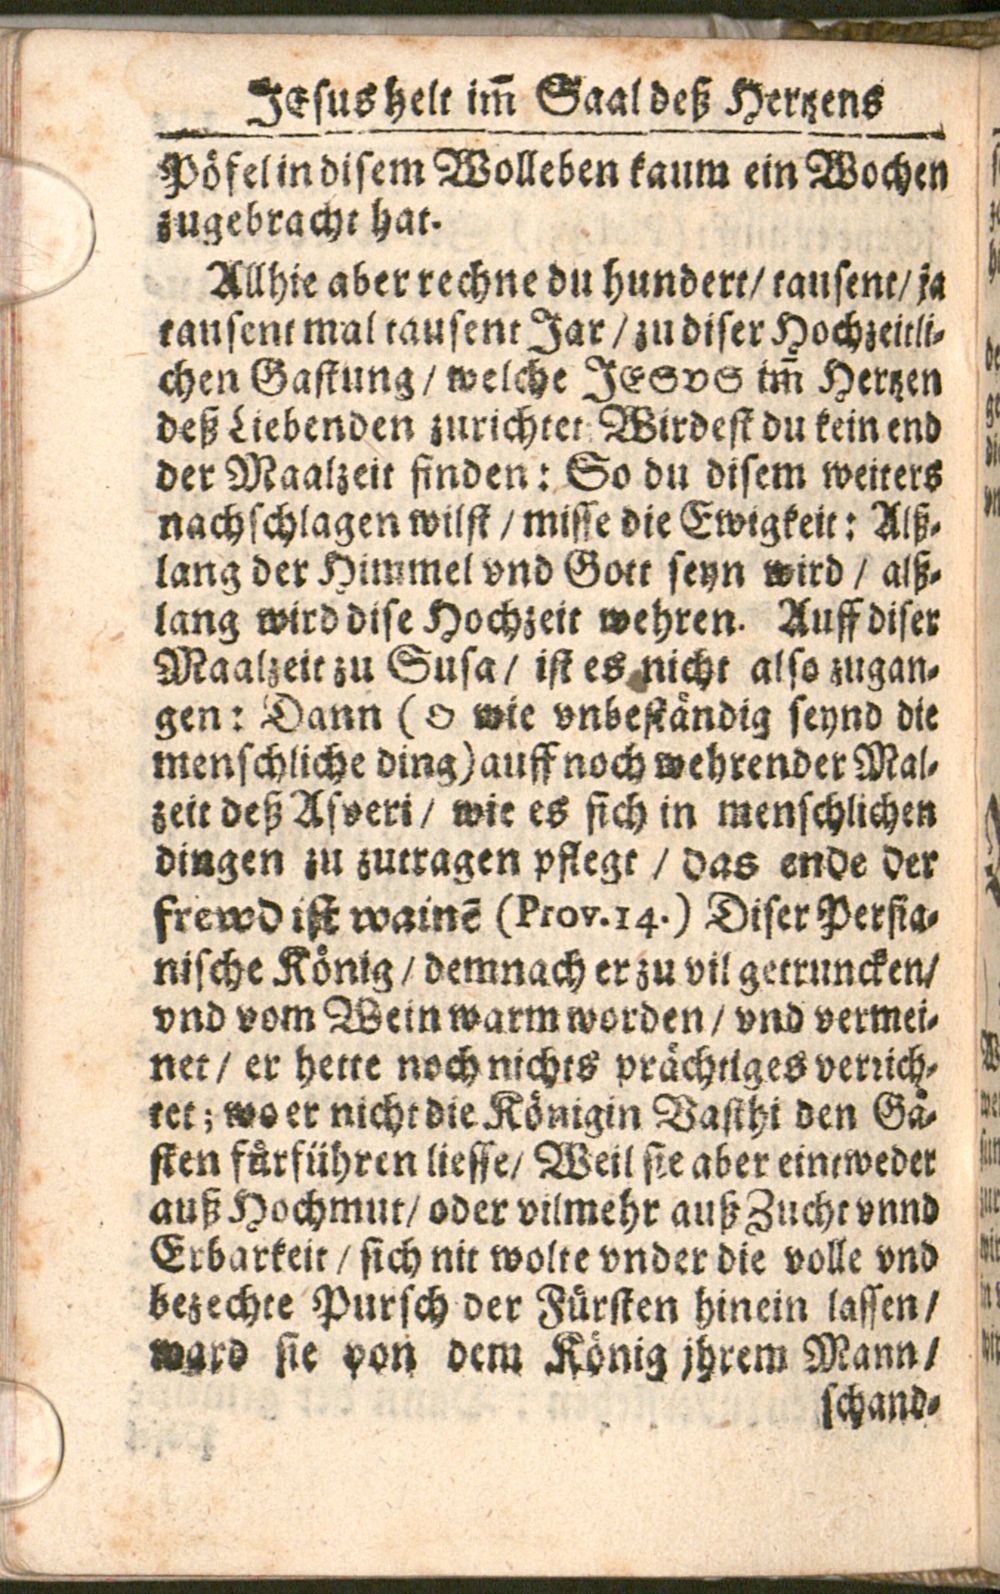 JEsus helt im̄ Saal deß Hertzens
Pöfel in disem Wolleben kaum ein Wochen
zugebracht hat.
Allhie aber rechne du hundert/ tausent/ ja
tausent mal tausent Jar / zu diser Hochzeitli-
chen Gastung / welche JESVS im̄ Hertzen
deß Liebenden zurichtet Wirdest du kein end
der Maalzeit finden: So du disem weiters
nachschlagen wilst / misse die Ewigkeit: Alß-
lang der Himmel vnd Gott seyn wird / alß-
lang wird dise Hochzeit wehren. Auff diser
Maalzeit zu Susa / ist es nicht also zugan-
gen: Dann ( O wie vnbeständig seynd die
menschliche ding) auff noch wehrender Mal-
zeit deß Asveri / wie es sich in menschlichen
dingen zu zutragen pflegt / das ende der
frewd ist wainē (Prov. 14.) Diser Persia-
nische König / demnach er zu vil getruncken/
vnd vom Wein warm worden / vnd vermei-
net / er hette noch nichts prächtiges verrich-
tet; wo er nicht die Königin Vasthi den Gä-
sten fürführen liesse/ Weil sie aber eintweder
auß Hochmut/ oder vilmehr auß Zucht vnnd
Erbarkeit / sich nit wolte vnder die volle vnd
bezechte Pursch der Fürsten hinein lassen /
ward sie von dem König jhrem Mann /
schand-